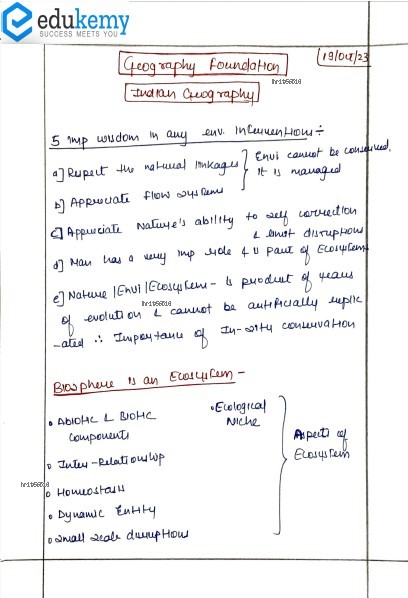 edukemy
SUCCESS MEETS YOU
19/04/23
Geography Foundation
hr1tb56516
Indian Geography
hr1tb56516
5 imp wisdom in any env. interventions÷
a] Respect the natural linkages } Envi cannot be conserved,
it is managed
b] Appreciate flow systems
c] Appreciate Nature's ability to self correction
& limit disruptions
d] Man has a very imp role & is part of Ecosystem
e] Nature |Envi|Ecosystem - is product of years
hr1tb56516
of evolution & cannot be artificially replic
-ated ∴ Importance of In-situ conservation
Biosphere is an Ecosystem -
• Abiotic & Biotic
Components
• Ecological
Niche
• Inter-Relationship
Aspects of
Ecosystem
hr1tb56516
• Homeostasis
• Dynamic Entity
• Small scale disruptions